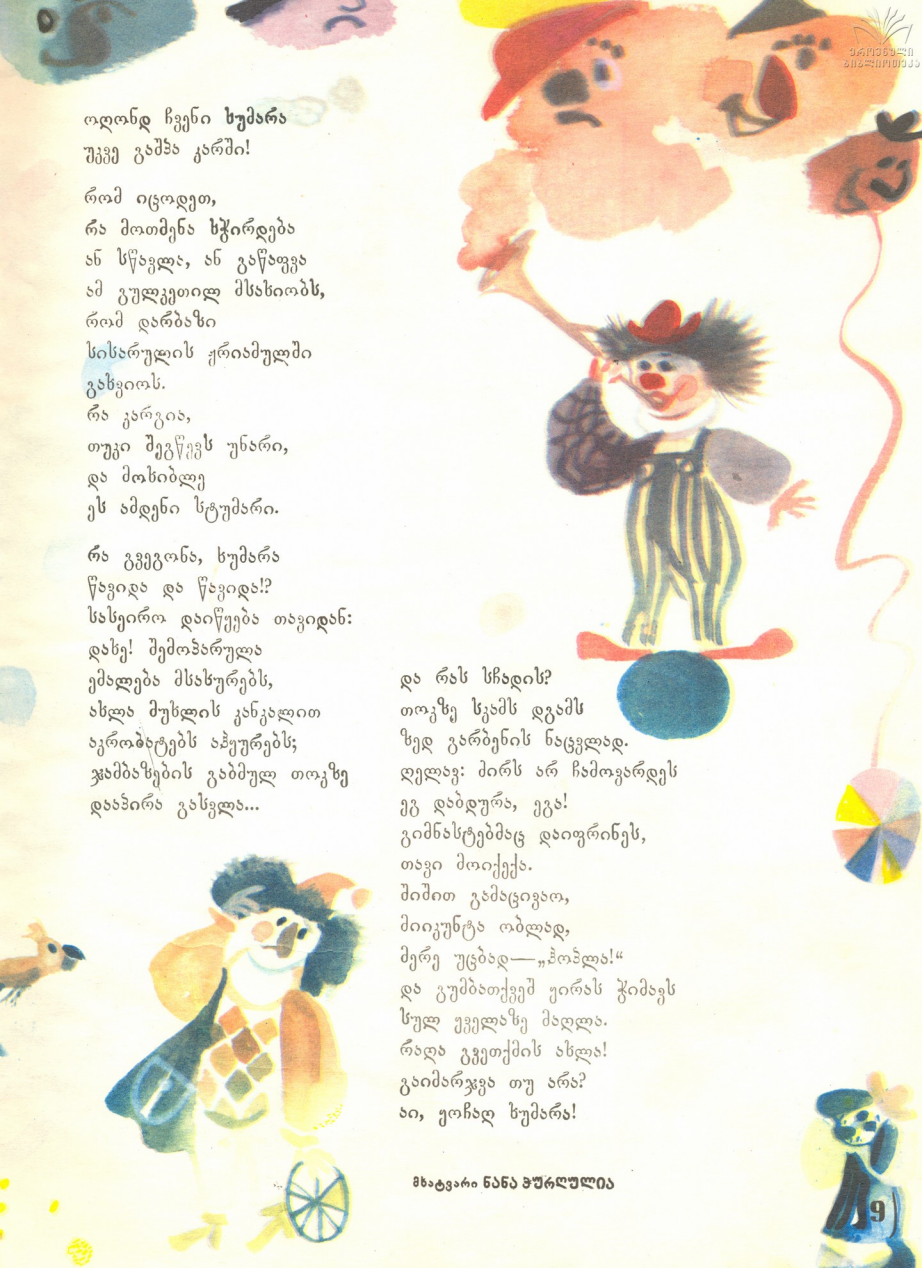 ეროვნული
ბიბლიოთეკა
ოღონდ ჩვენი ხუმარა
უკვე გაშპა კარში!
რომ იცოდეთ,
რა მოთმენა სჭირდება
ან სწავლა, ან გაწაფვა
ამ გულკეთილ მსახიობს,
რომ დარბაზი
სიხარულის ჟრიამულში
გახვიოს.
რა კარგია,
თუკი შეგწევს უნარი,
და მოხიბლე
ეს ამდენი სტუმარი.
რა გვეგონა, ხუმარა
წავიდა და წავიდა!?
სახეირო დაიწყება თავიდან:
დახე! შემოპარულა
ემალება მსახურებს,
ახლა მუხლის კანკალით
აკრობატებს აჰყურებს;
ჯამბაზების გაბმულ თოკზე
დააპირა გასვლა...
და რას სჩადის?
თოკზე სკამს დგამს
ზედ გარბენის ნაცვლად.
ღელავ: ძირს არ ჩამოვარდეს
ეგ დაბდურა, ეგა!
გიმნასტებმაც დაიფრინეს,
თავი მოიქექა.
შიშით გამაცივაო,
მიიკუნტა ობლად,
მერე უცბად—„ჰოპლა!“
და გუმბათქვეშ ყირას ჭიმავს
სულ ყველაზე მაღლა.
რაღა გვეთქმის ახლა!
გაიმარჯვა თუ არა?
აი, ყოჩაღ ხუმარა!
მხატვარი ნანა ჭურღულია
9